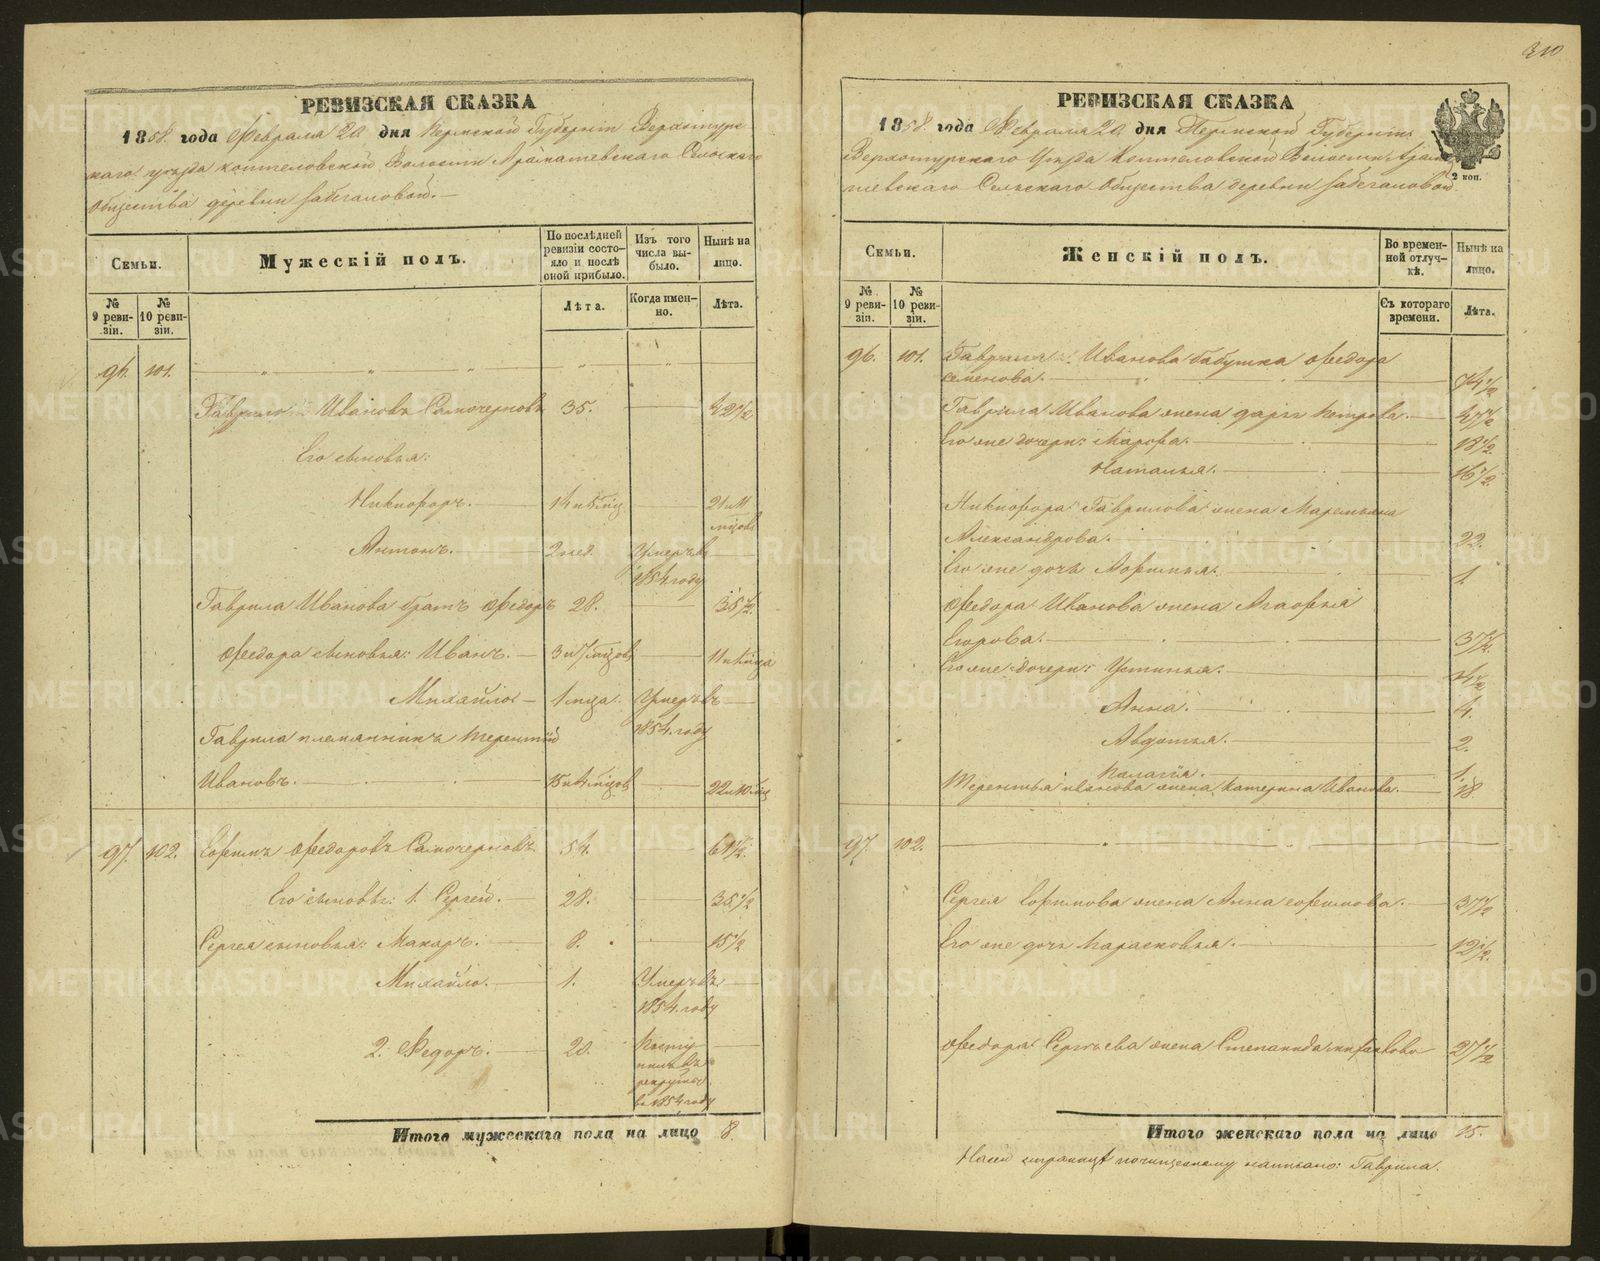 РЕВИЗСКАЯ СКАЗКА
1858 года Февраля 20 дня Пермской Губерніи Верхотурс
каго уѣзда Коптеловской Волости Арамашевскаго Сельскаго
Общества деревни
Семьи.
Мужескій полъ.
По послѣдней ревизіи состояло и послѣ оной прибыло.
Изъ того числа выбыло.
Нынѣ на лицо.
№ 9 ревизіи.
№ 10 ревизіи.
Лѣта.
Когда именно.
Лѣта.
96. 101.
Гаврило Ивановъ Самочерновъ 35. 42 1/2
Его сыновья:
Никифоръ. 21 и 11 мцовъ
Антонъ. 2 нед. Умеръ въ
1854 году
Гаврила Иванова братъ Ѳедоръ 28. 35 1/2.
Ѳедора сыновья: Иванъ. 3 и 7 мцовъ
Михайло 1 мца. Умеръ въ
1854 году
Гаврила племянникъ Терентій
Ивановъ. 22 и 10 мц
97. 102. Ефимъ Ѳедоровъ Самочерновъ 54. 61 1/2.
Его сыновья: 1. Сергей. 28. 35 1/2
Сергея сыновья: Макаръ. 8. 15 1/2
Михайло. 1. Умеръ въ
1854 году
2. Ѳедоръ. 20. Посту
пилъ въ
рекруты
въ 1854 году
Итого мужескаго пола на лицо 8.
310
РЕВИЗСКАЯ СКАЗКА
1858 года Февраля 20 дня Пермской Губерніи
Верхотурскаго Уѣзда Коптеловской Волости Арама
шевскаго Сельскаго Общества деревни
2 коп.
Семьи.
Женскій полъ.
Во временной отлучкѣ.
Нынѣ на лицо.
№ 9 ревизіи.
№ 10 ревизіи.
Съ котораго времени.
Лѣта.
96. 101. Гаврила Иванова бабушка Ѳедора
Семенова. 74 1/2
Гаврила Иванова жена Дарья Петрова.
Его же дочери: Марфа. 18 1/2.
Наталья. 16 1/2.
Никифора Гаврилова жена Маремьяна
Александрова. 22.
Его же дочь 1.
Ѳедора Иванова жена Агафья
Егорова. 37 1/2.
Его же дочери: Устинья.
Анна. 4.
Авдотья. 2.
Палагія. 1.
Терентья Иванова жена Катерина Иванова. 18.
97. 102.
Сергея Ефимова жена Анна Ефимова. 37 1/2
Его же дочь Парасковья. 12 1/2.
Ѳедора Сергѣева жена Степанида 27 1/2
Итого женскаго пола на лицо 15.
На сей страницѣ по чищенному написано: Гаврила.
METRIKI.GASO-URAL.RU